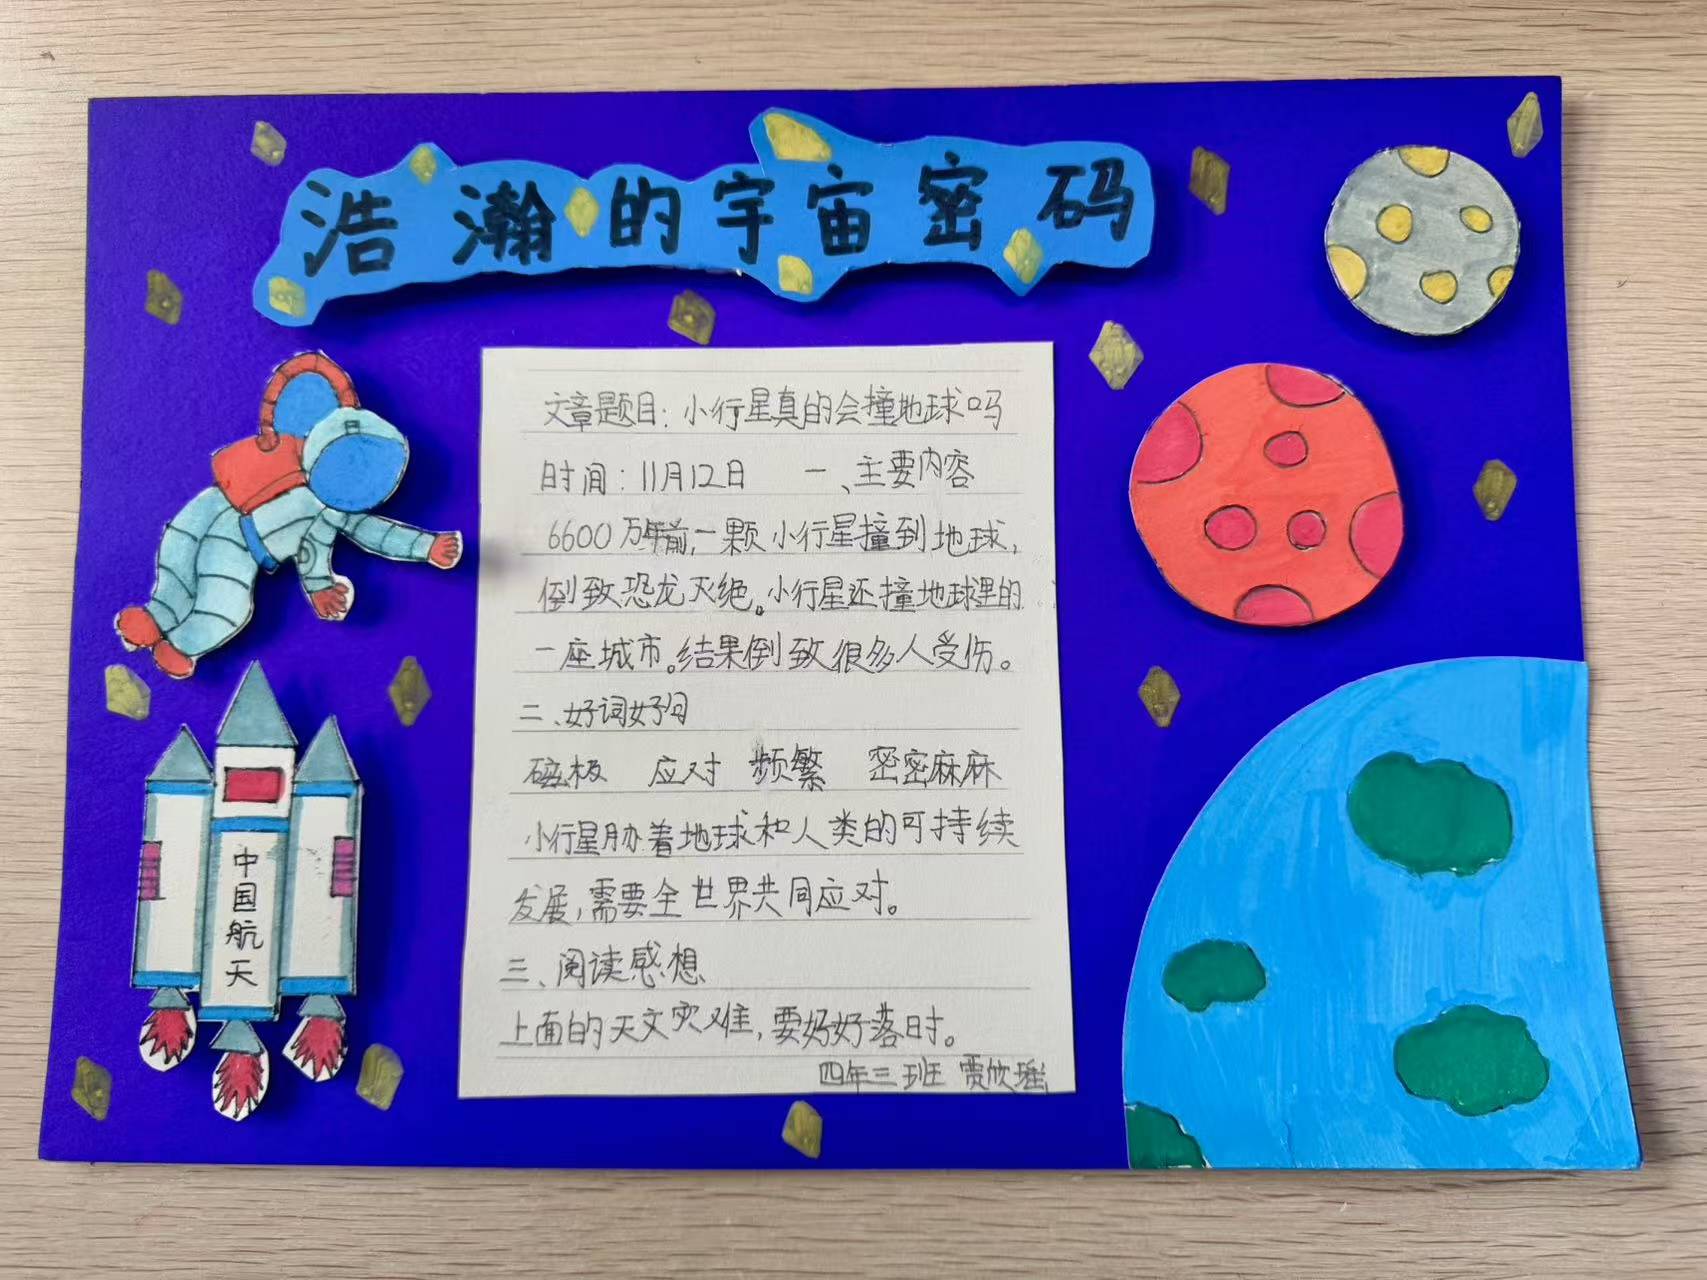 浩瀚的宇宙密码
文章题目:小行星真的会撞地球吗
时间:11月12日 一、主要内容
6600万年前,一颗小行星撞到地球,
倒致恐龙灭绝。小行星还撞地球里的
一座城市。结果倒致很多人受伤。
二、好词好句
磁极 应对 频繁 密密麻麻
小行星胁着地球和人类的可持续
发展,需要全世界共同应对。
三、阅读感想
上面的天文灾难,要好好落时。
四年三班 贾欣瑶
中国航天